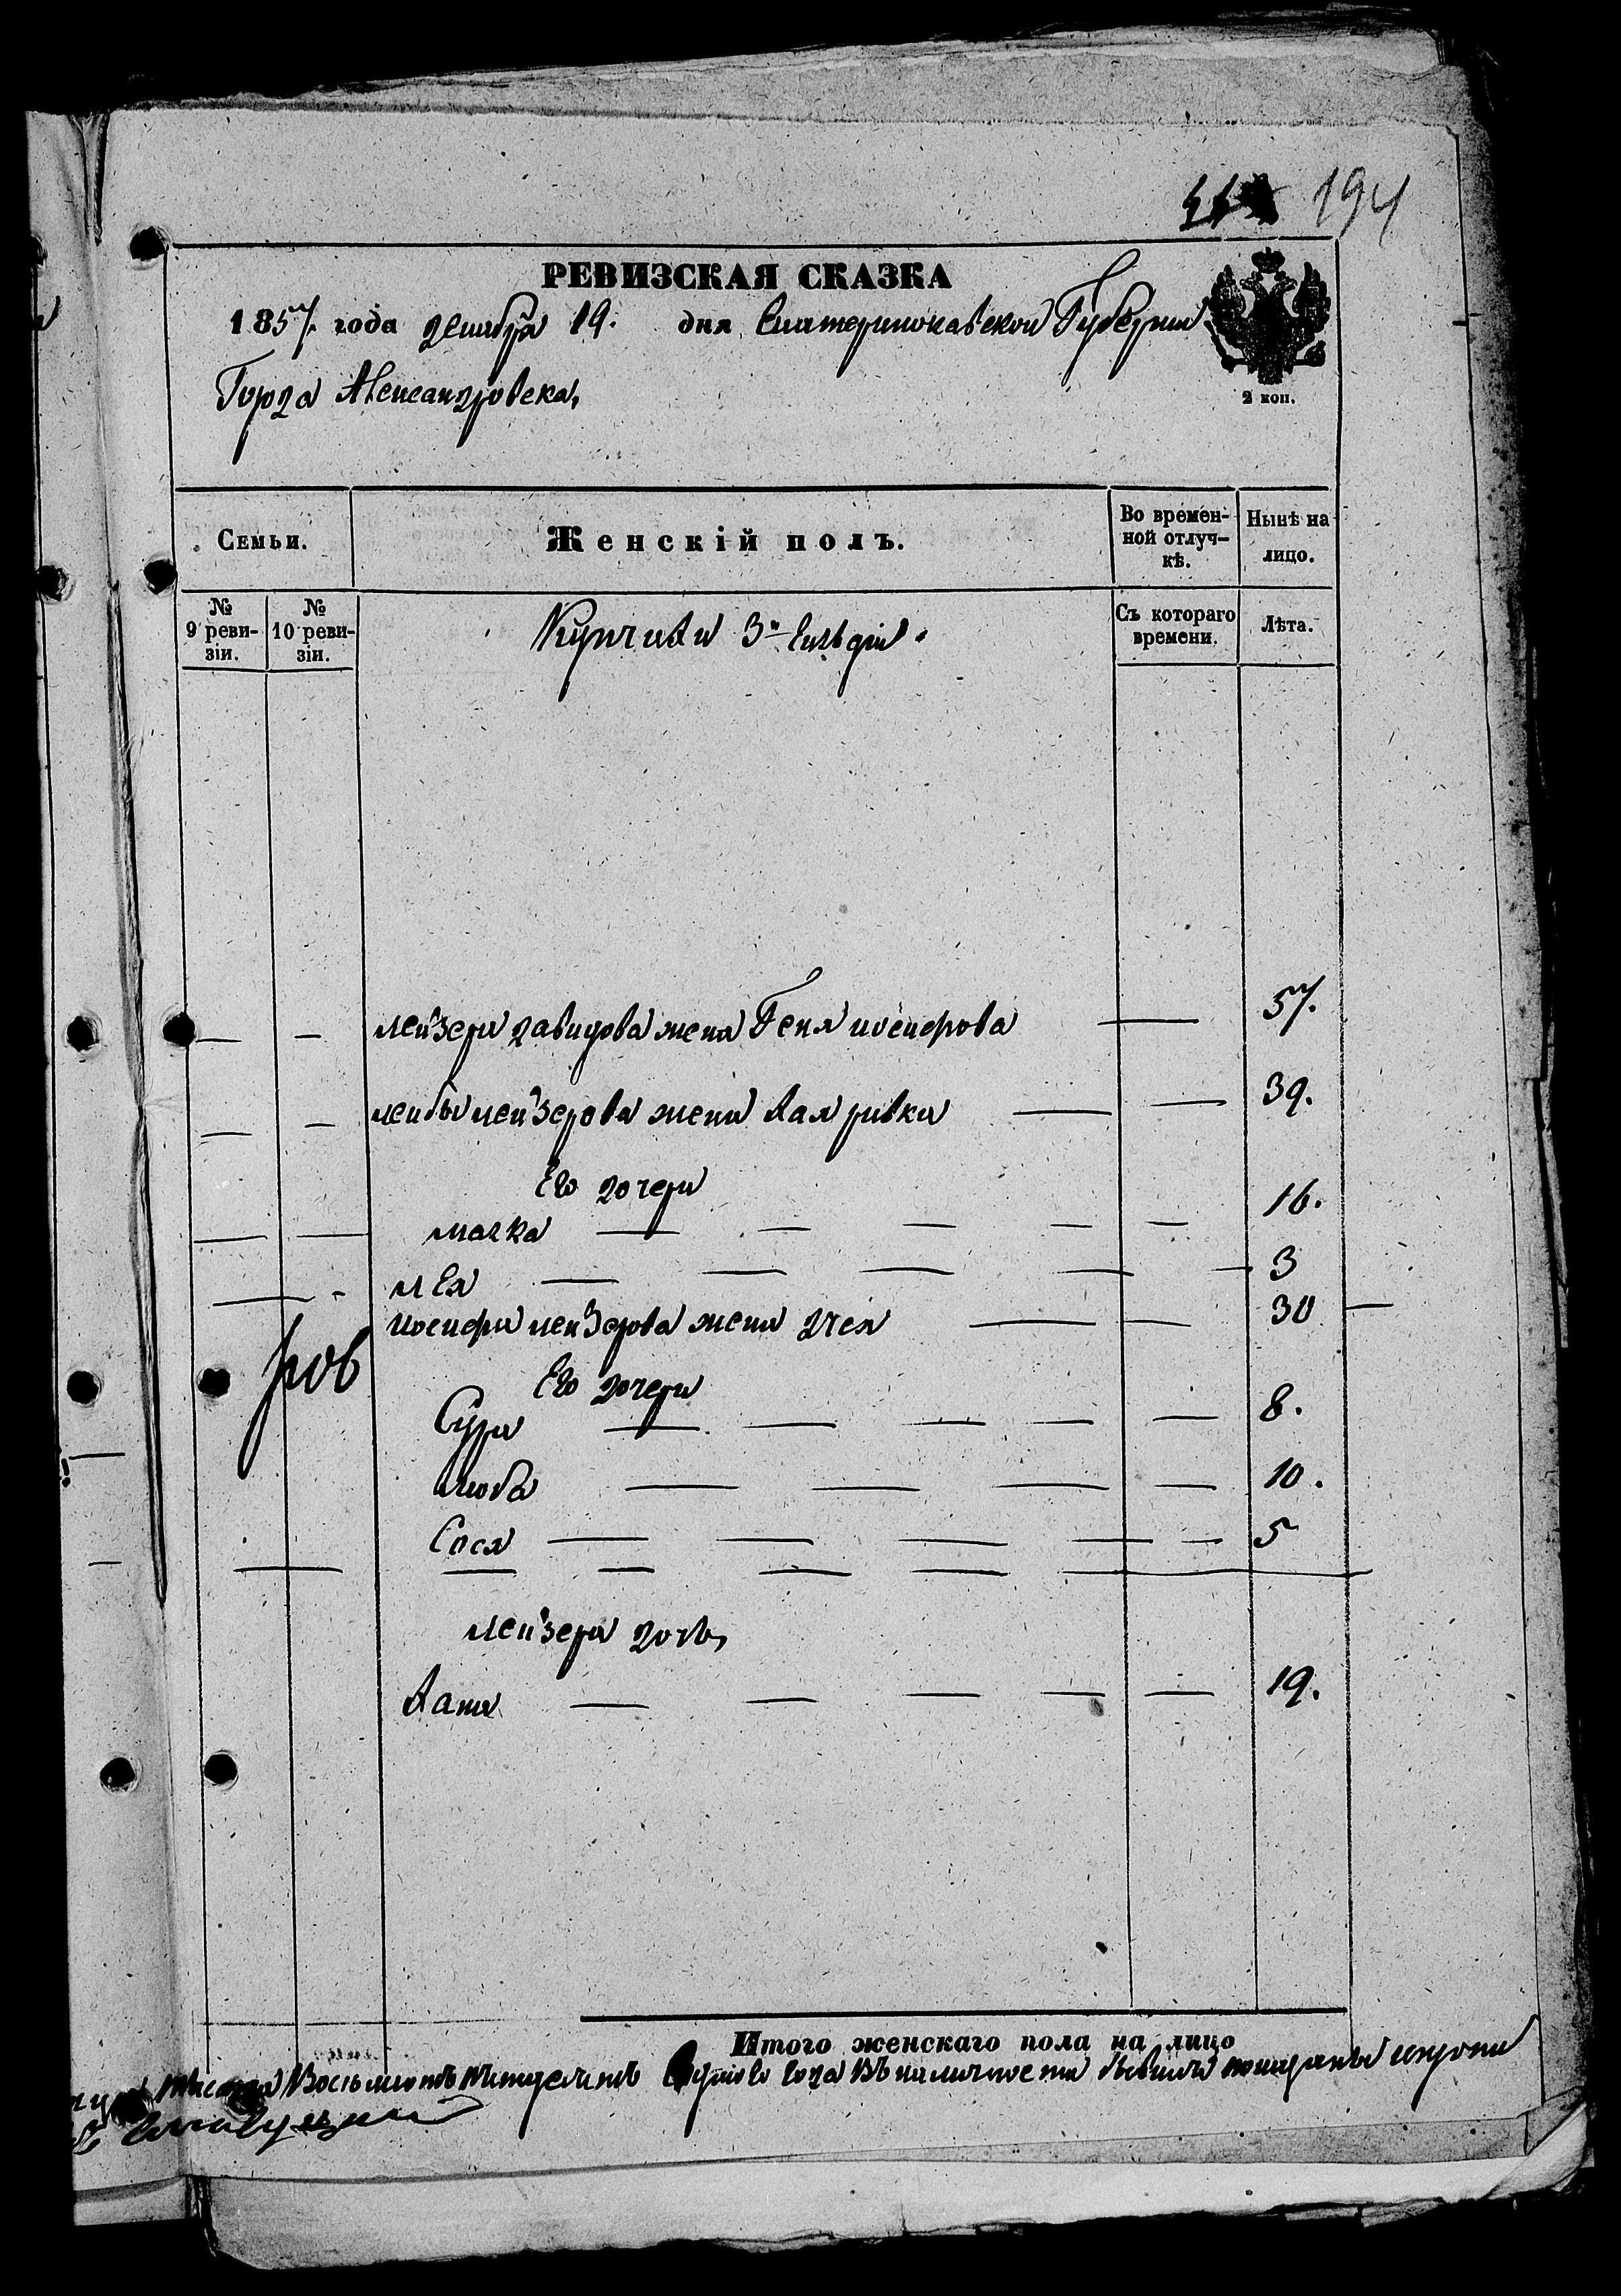 194
РЕВИЗСКАЯ СКАЗКА
1857. года декабря 19. дня Екатеринославской Губернии
2 коп.
Города Александровска,
Семьи. Женскій полъ. Во времен-ной отлуч-кѣ. Нынѣ на лицо.
№ 9 реви-зіи. № 10 реви-зіи. Купчихи 3й Гильдіи. Съ котораго времени. Лѣта.
— — Лейзера Давидова жена Геня Иосифова — 57.
— — Лейбы Лейзерова жена Хая Ривка — — 39.
Его дочери
— — Малка — — — — — 16.
— - Лея — — — — — 3
Иосифа Лейзерова жена — — 30 —
Его дочери
Сура — — — — — 8.
Люба — — — — 10.
Сося — — — — — 5
— — — — — —
Лейзера дочь
Хана — — — — — 19.
Итого женскаго пола на лицо
Восьмсотъ Пятдесятъ года Въ наличности